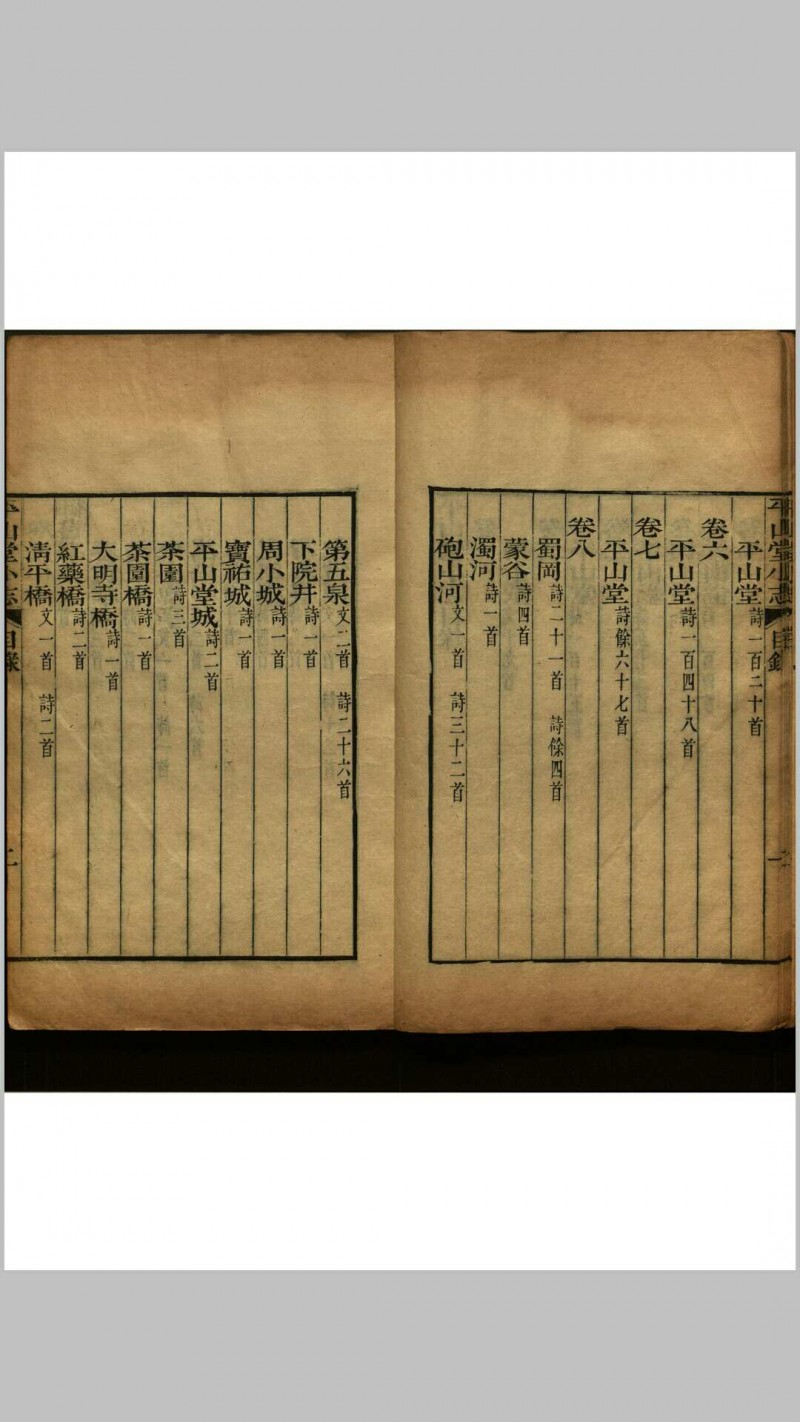 平山堂小志 目錄 一
平山堂 詩一百二十首
卷六
平山堂 詩一百四十八首
卷七
平山堂 詩餘六十七首
卷八
蜀岡 詩二十一首 詩餘四首
蒙谷 詩四首
濁河 詩一首
砲山河 文一首 詩三十二首
第五泉 文二首 詩二十六首
下院井 詩一首
周小城 詩一首
寶祐城 詩一首
平山堂城 詩二首
茶園 詩三首
茶園橋 詩一首
大明寺橋 詩一首
紅藥橋 詩二首
清平橋 文一首 詩二首
平山堂小志 目錄 二